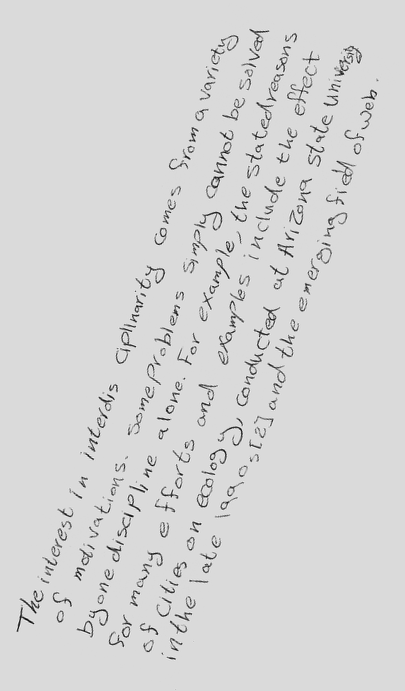 The interest in interdis ciplinarity comes from a variety
of motivations. Some problems simply cannot be solved
by one discipline alone. For example, the stated reasons
for many efforts and examples include the effect
of cities on ecology, conducted at Arizona state university
in the late 1990s[2] and the emerging field of web.